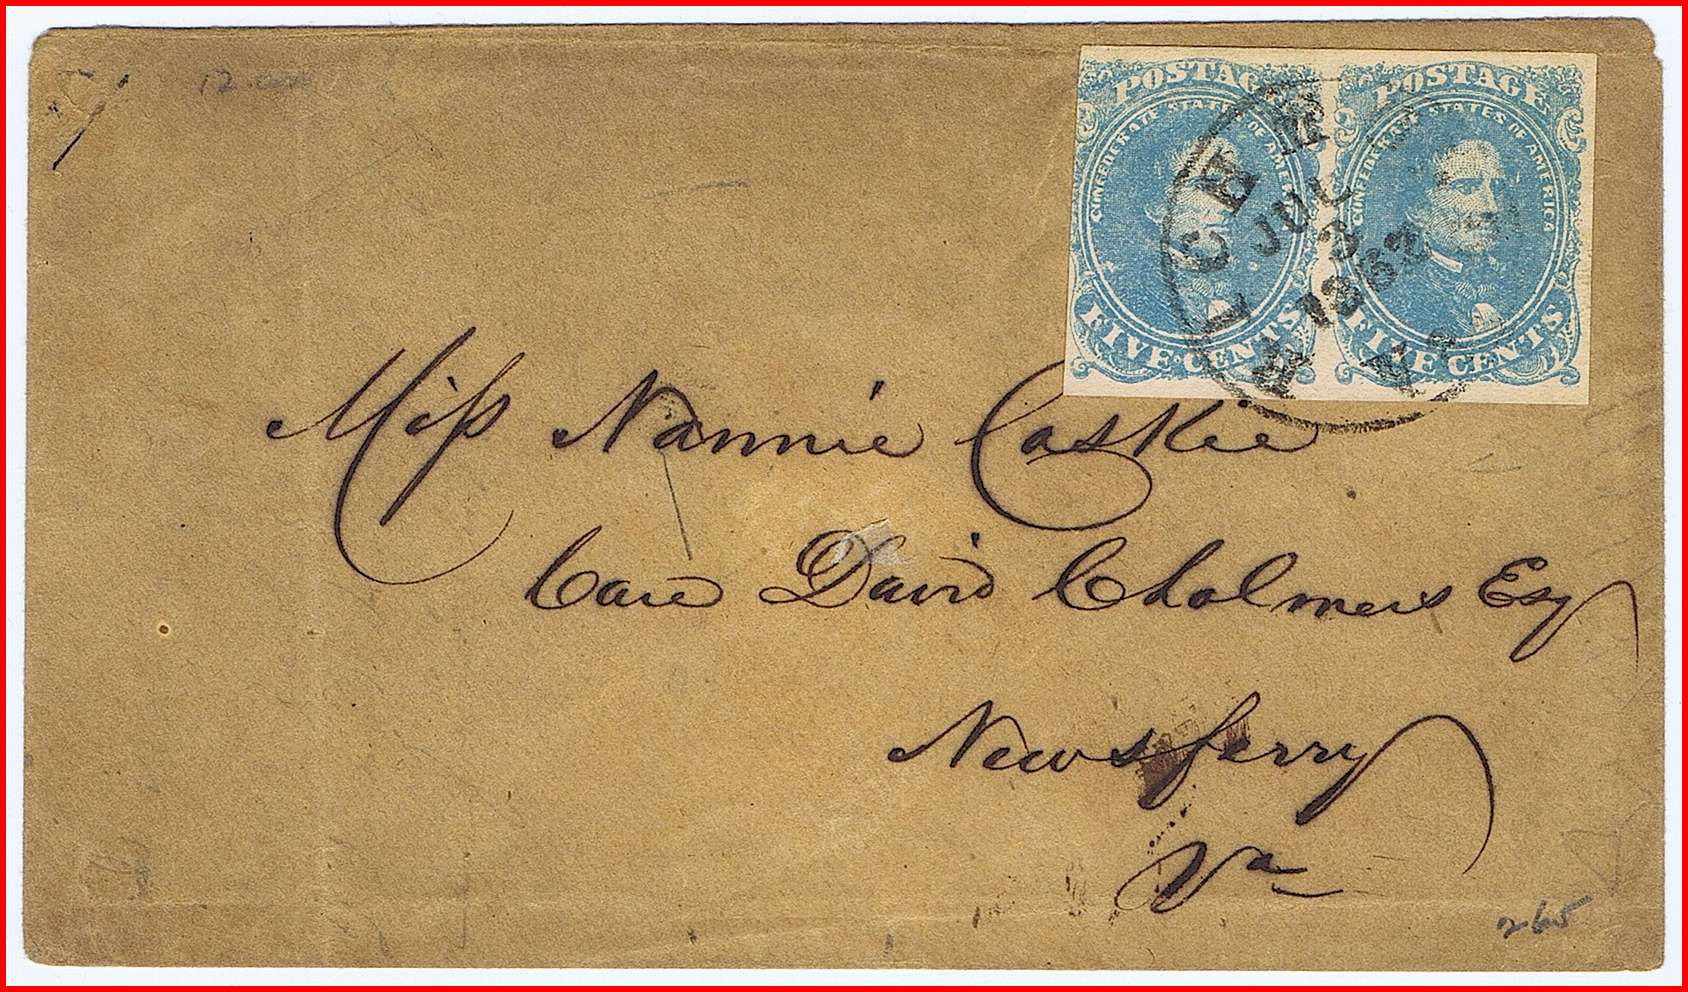 12.00
POSTAGE POSTAGE
CONFEDERATE STATES OF AMERICA CONFEDERATE STATES OF AMERICA
FIVE CENTS FIVE CENTS
RICHMOND VA.
JUL
3
1862
Miss Nannie Caskie
Care David Chalmers Esq
Newsferry
Va
265